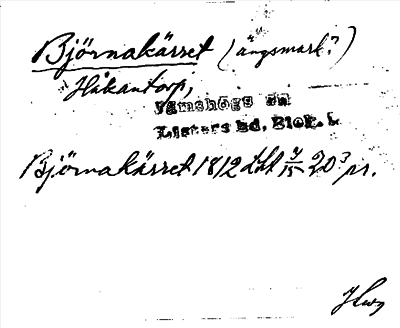 Björnakärret (ängsmark?)
Håkantorp,
Jämshögs sn
Listers hd, Blek. l.
Björnakärret 1812 Lht 20³ pr.